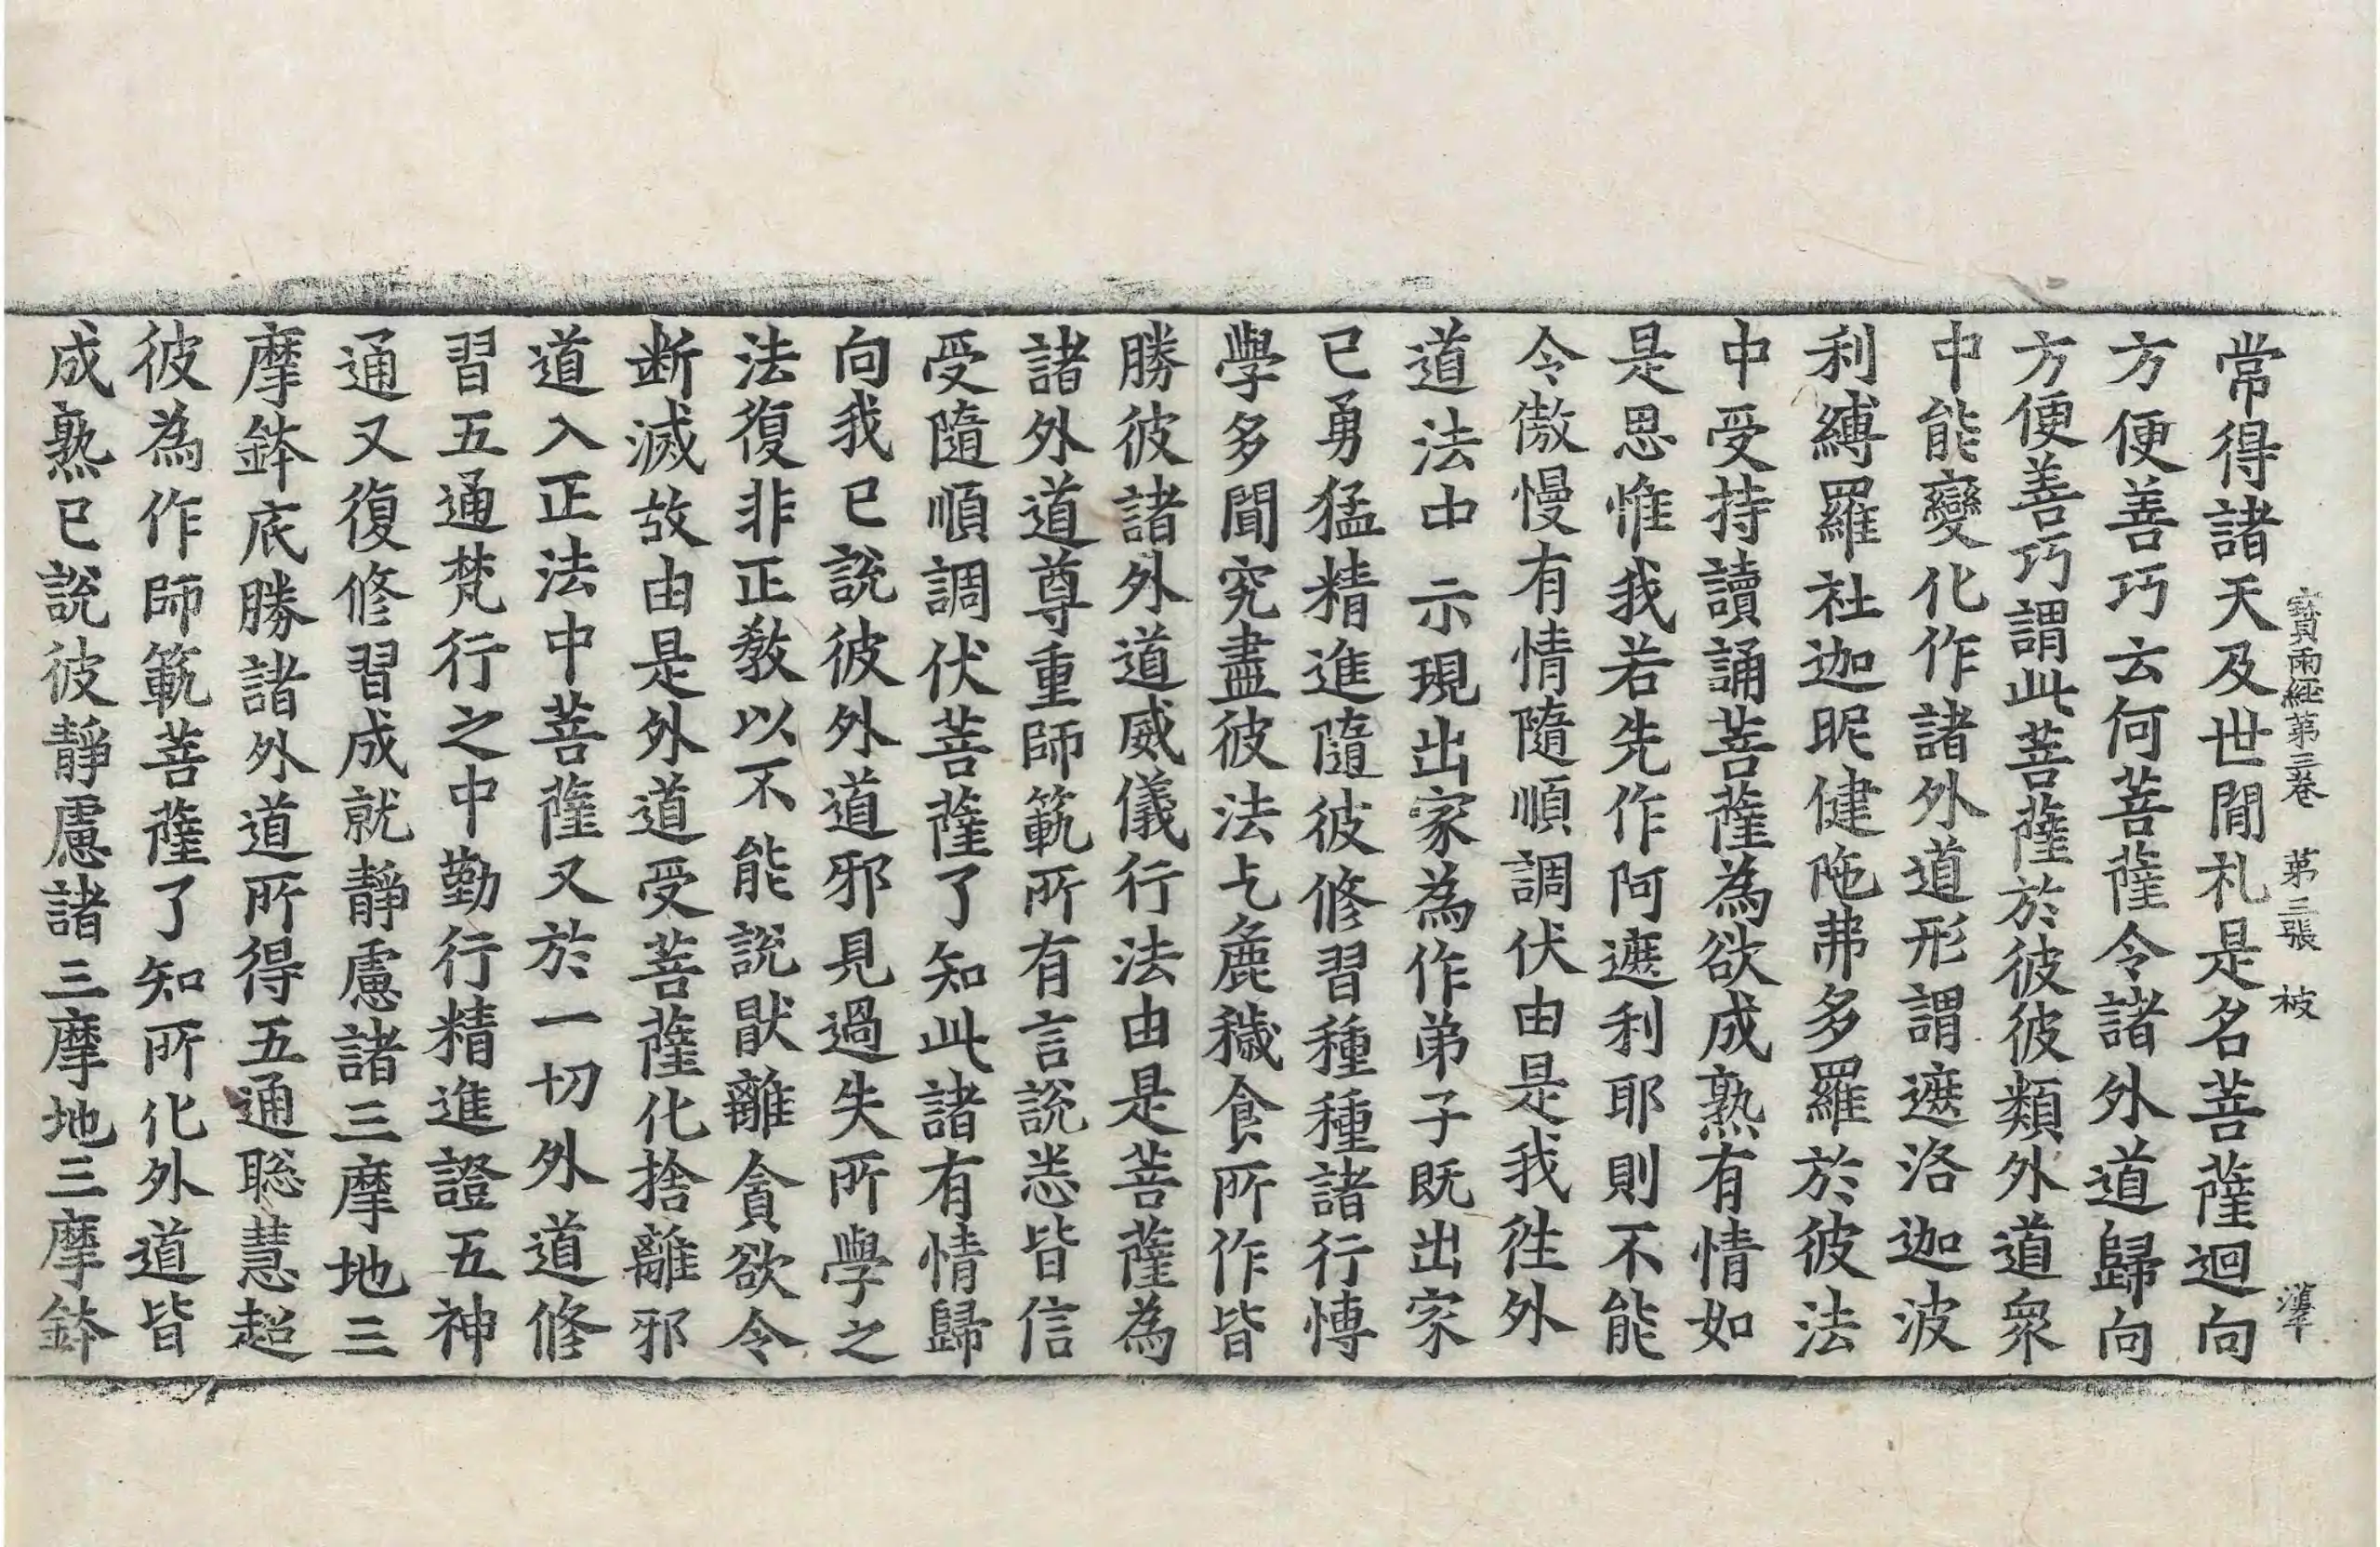 寶雨經第三卷 第三張 被 漢
常得諸天及世閒礼是名菩薩迴向
方便善巧云何菩薩令諸外道歸向
方便善巧謂此菩薩於彼彼類外道衆
中能變化作諸外道形謂遮洛迦波
利縛羅社迦昵健陁弗多羅於彼法
中受持讀誦菩薩為欲成熟有情如
是思惟我若先作阿遮利耶則不能
令傲慢有情隨順調伏由是我徃外
道法中示現出家為作弟子旣出家
已勇猛精進隨彼修習種種諸行愽
學多聞究盡彼法乞麁穢食所作皆
勝彼諸外道威儀行法由是菩薩為
諸外道尊重師範所有言說悉皆信
受隨順調伏菩薩了知此諸有情歸
向我已說彼外道邪見過失所學之
法復非正教以不能說猒離貪欲令
断滅故由是外道受菩薩化捨離邪
道入正法中菩薩又於一切外道修
習五通梵行之中勤行精進證五神
通又復修習成就靜慮諸三摩地三
摩鉢底勝諸外道所得五通聦慧超
彼為作師範菩薩了知所化外道皆
成熟已說彼靜慮諸三摩地三摩鉢